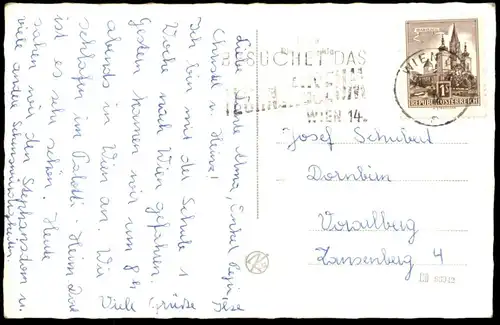 Liebe Tante Alma, Onkel Pepi,
Christl u. Heinz!
Ich bin mit der Schule 1
Woche nach Wien gefahren.
Gestern kamen wir um 8 h
abends in Wien an. Wir
schlafen im Palotti-Heim. Dort
ist es sehr schön. Heute
sahen wir den Stephansdom u.
viele andere Sehenswürdigkeiten.
Viele Grüße Ilse
BESUCHET DAS
WIEN 14.
WIEN
REPUBLIK ÖSTERREICH
1S
Josef Schubert
Dornbirn
Voralberg
Lansenberg 4